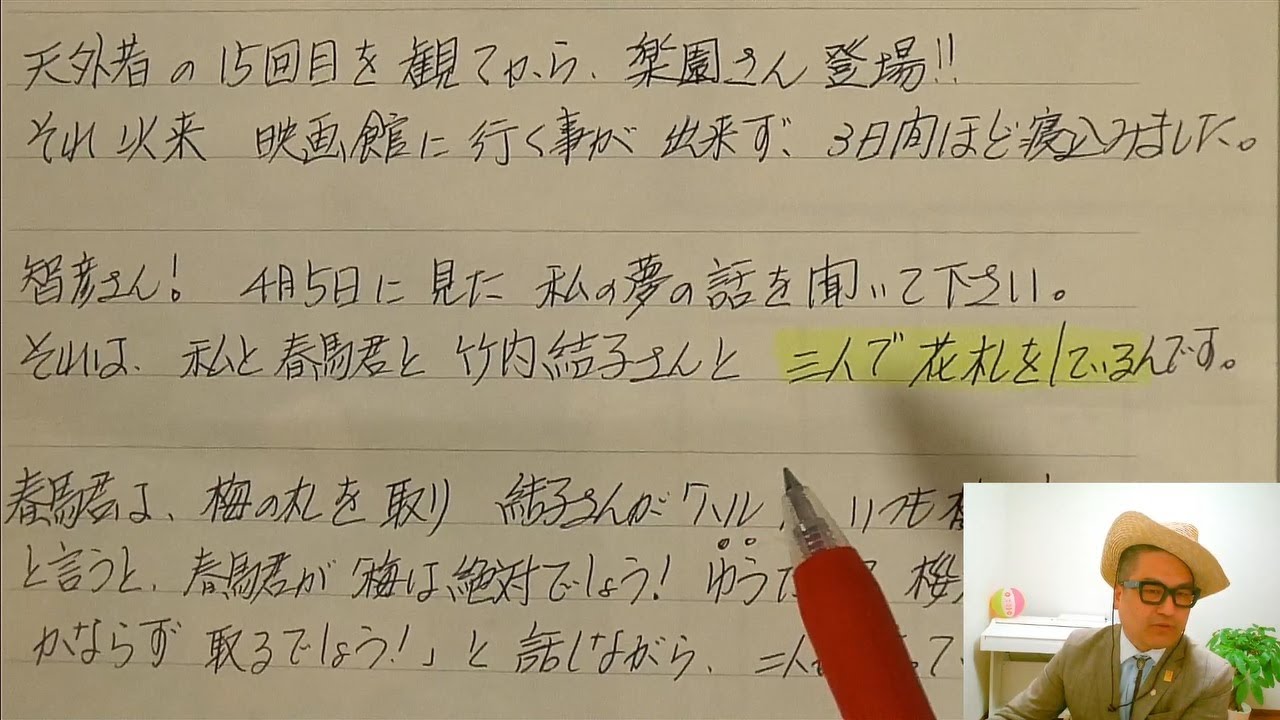 天外者の15回目を観てから、楽園さん登場!!
それ以来 映画館に行く事が出来ず、3日間ほど寝込みました。
智彦さん! 4月5日に見た 私の夢の話を聞いて下さい。
それは、私と春馬君と竹内結子さんと 三人で花札をしているんです。
春馬君は、梅の札を取り 結子さんが「ハル、いつも
と言うと、春馬君が「梅は絶対でしょう! ゆう
かならず 取るでしょう!」と話しながら、